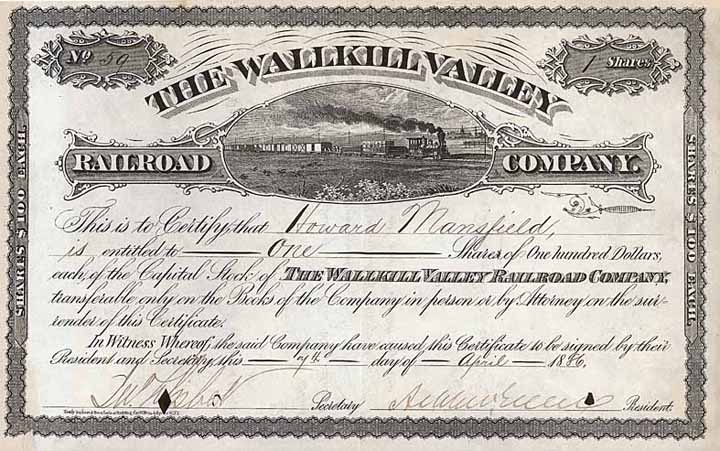 No 59
1 Shares
THE WALLKILL VALLEY
RAILROAD COMPANY.
SHARES $100 EACH.
SHARES $100 EACH.
This is to Certify that Howard Mansfield,
is entitled to One Shares of One hundred Dollars,
each, of the Capital Stock of THE WALLKILL VALLEY RAILROAD COMPANY,
transferable only on the Books of the Company in person or by Attorney on the sur-
render of this Certificate.
In Witness Whereof, the said Company have caused this Certificate to be signed by their
President and Secretary, this day of April 1886.
Secretary President.